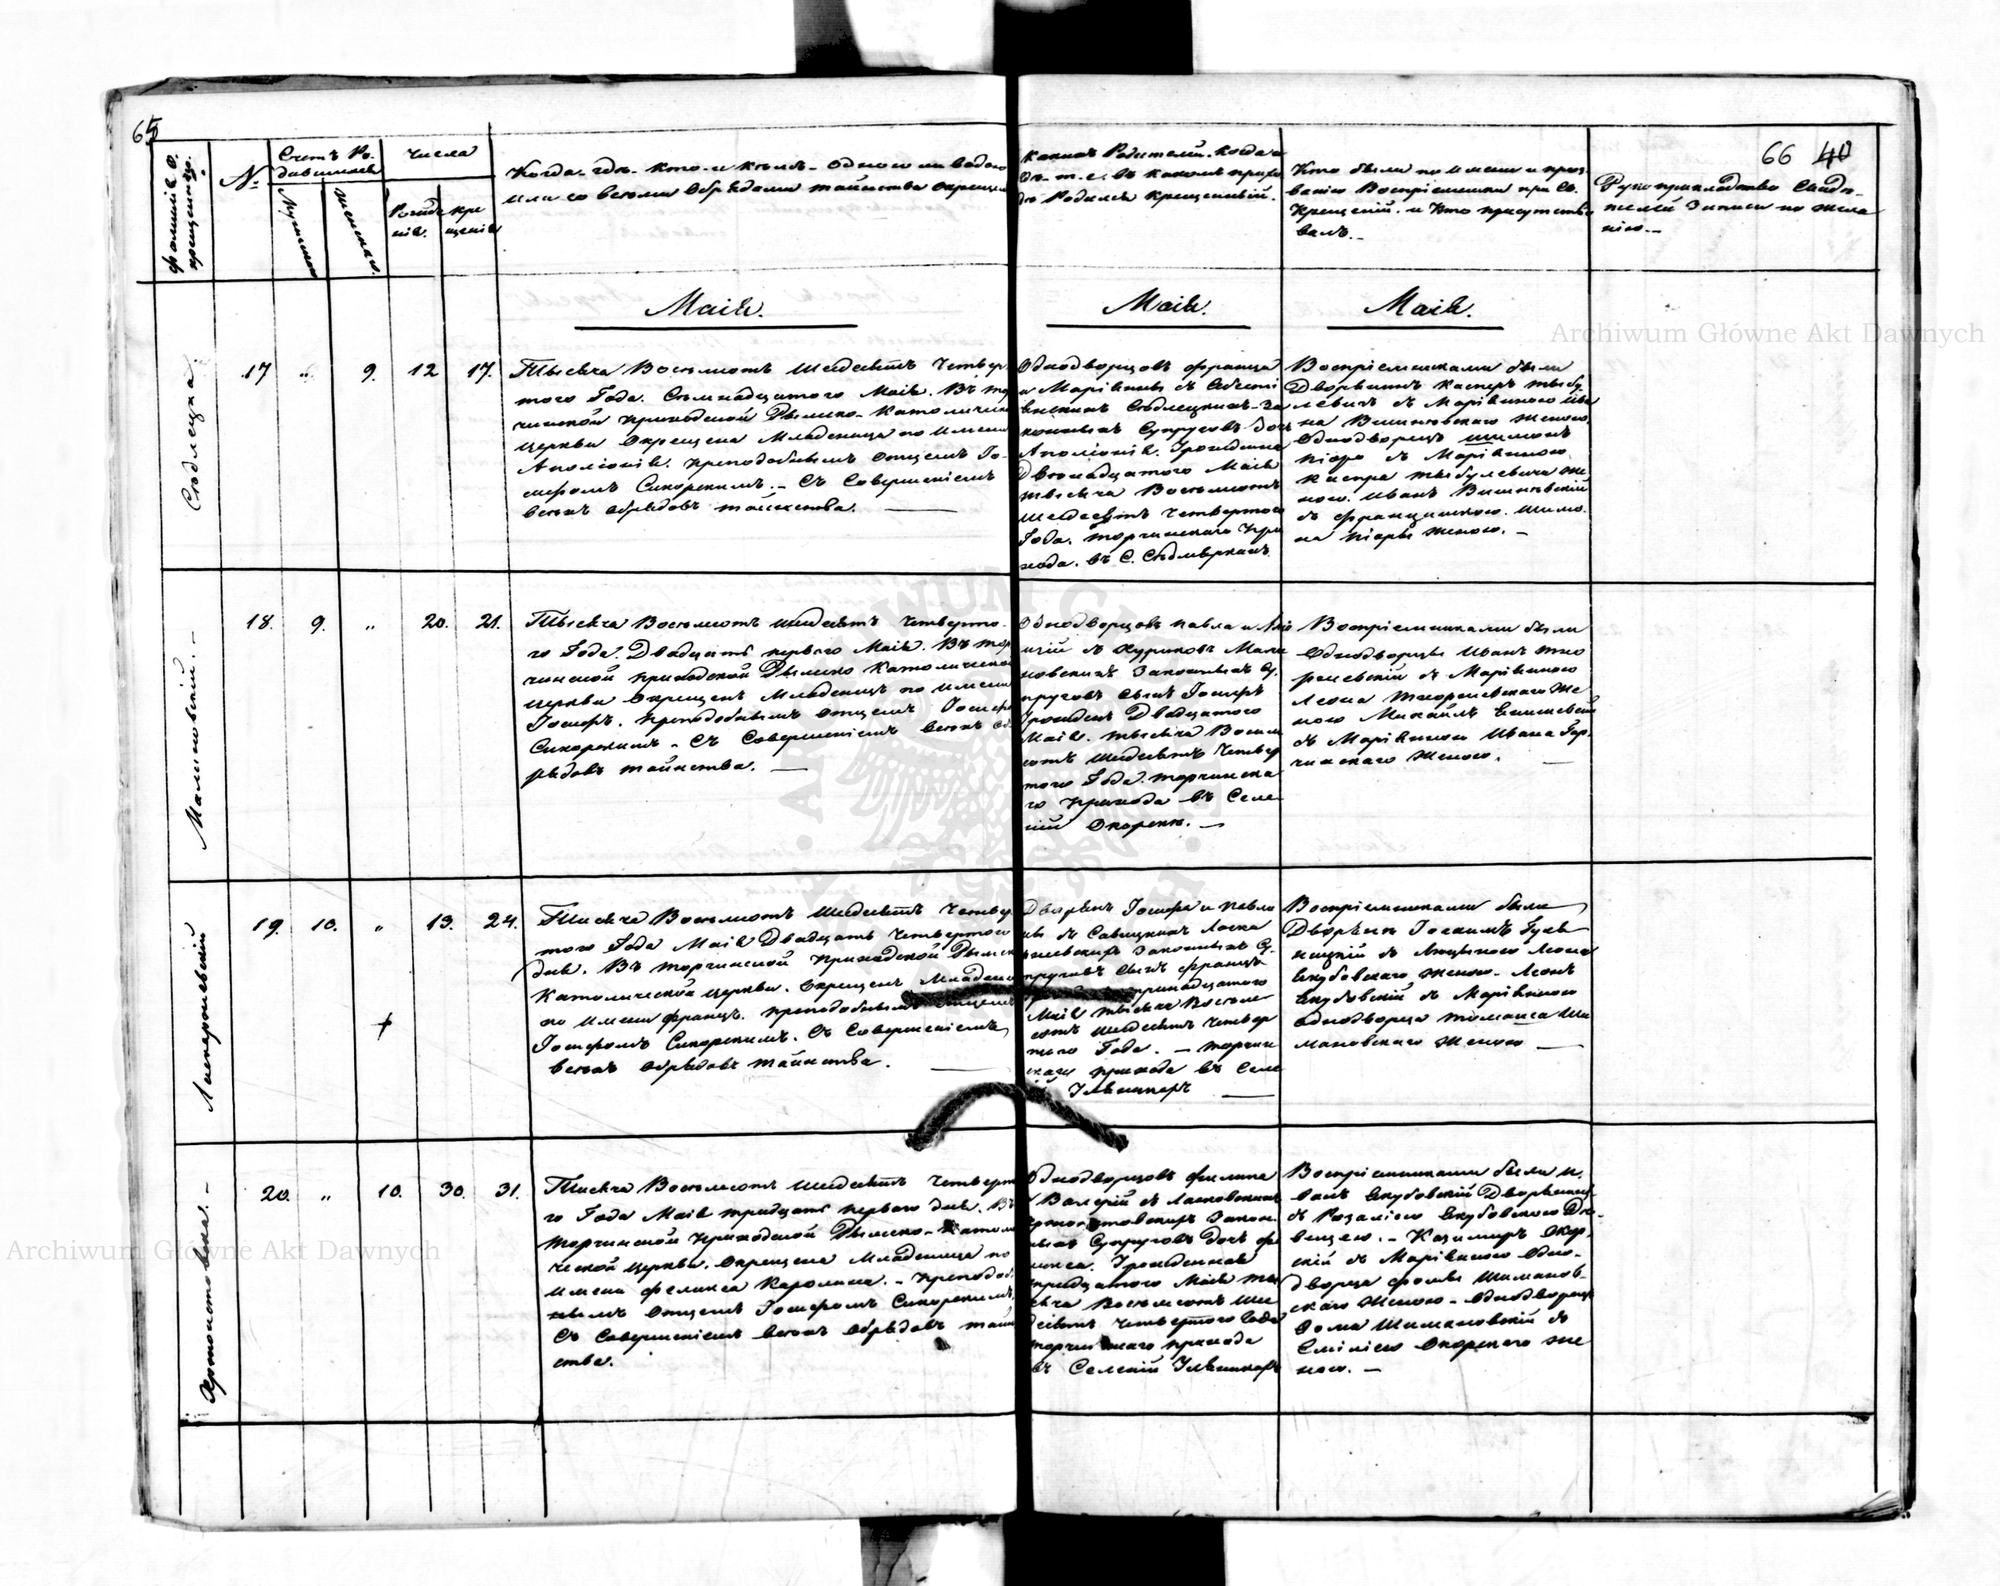 65
66 40
фамилія о.
крещеннаго.
№
Счетъ Ро-
дившихся
Мужскаго
Женскаго
Числа
Рожде
нія.
кре
щенія
Когда. гдѣ. кто и кѣмъ. одною ли водою
или со всѣми обрядами таинства окрещенъ
какихъ Родителей. когда и
гдѣ. т. е. въ какомъ прихо
дѣ Родился крещенный.
Кто были по имени и проз-
ванію Воспріемники при Св.
Крещеніи. и кто присутство
валъ.
Рукоприкладство Свидѣ-
телей Записи по жела
нію.
Маія.
Маія.
Маія.
Archiwum Główne Akt Dawnych
Сѣдлецка.
17 „ 9. 12 17.
Тысяча Восемсотъ Шесдесятъ Четвер
того Года. Семнадцатого Маія. Въ тор
чинской приходской Рымско-Католической
церкви окрещена Младеница по имени
Аполіонія. преподобнымъ отцемъ Іо-
сифомъ Сикорскимъ. Съ Совершеніемъ
всѣхъ обрядовъ таинства.
Однодворцовъ франца
и Маріянны
Сѣдлецкихъ За
конныхъ Супруговъ дочь
Аполіонія. Урожденна
Двѣнадцатого Маія
тысяча Восемсотъ
Шесдесятъ Четвертого
Года. торчинскаго при
хода. въ С. Сѣдмяркахъ
Воспріемниками были
Дворянинъ Касперъ тыбу
левичъ съ Маріянною Ива
на Вишнѣвскаго женою
Однодворецъ шимонъ
піоро съ Маріянною
Каспра тыбулевича же
ною. Иванъ Вишнѣвскій
съ францишкою. шимо
на піоры женою.
Малиновскій.
18. 9. „ 20. 21.
Тысяча Восемсотъ шесдесятъ Четверто-
го Года. Двадцатъ первого Маія. Въ тор
чинской приходской Рымско Католической
церкви Окрещенъ Младенецъ по имени
Іосифъ. преподобнымъ отцемъ Іосифо
Сикорскимъ. Съ Совершеніемъ всѣхъ об
рядовъ таинства.
Однодворцовъ павла и
Мали
новскихъ Законныхъ Су
пруговъ Сынъ Іосифъ
Урожденъ Двадцатого
Маія. тысяча Восем
сотъ Шесдесятъ Четвер
того Года. торчинска
го прихода въ Селе
ніи Окорскъ.
Воспріемниками были
Однодворцы Иванъ
съ Маріянною
Леона же
ною Михаилъ
съ Маріянною Ивана Гор
чинскаго женою.
19. 10. „ 13. 24.
Тисяча Восемсотъ Шесдесятъ Четвер
того Года Маія Двадцатъ Четвертого
дня. Въ торчинской приходской Рымско
Католической церкви. Окрещенъ Младенец
по имени францъ. преподобнымъ отцемъ
Іосифомъ Сикорскимъ. Съ Совершеніемъ
всѣхъ обрядовъ таинства.
Дворянъ Іосифа и павли
ны съ Савицкихъ
Законныхъ Су
пруговъ Сынъ францъ
тринадцатого
Маія тысяча Восем
сотъ Шесдесятъ Четвер
того Года. — торчин
скаго прихода въ Селе
ніи
Воспріемниками были
Дворяни Іоакимъ
съ Леона
Якубовскаго женою. Леонъ
Якубовскій съ Маріянною
однодворца томаша Ши
мановскаго женою
20. „ 10. 30. 31.
Тисяча Восемсотъ Шесдесятъ Четверт
го Года Маія тридцатъ первого дня. Въ
Торчинской приходской Рымско-Католи
ческой церкви. окрещена Младеница по
имени феликса Каролина. преподоб
нымъ отцемъ Іосифомъ Сикорскимъ
Съ Совершеніемъ всѣхъ обрядовъ таин
ства.
Однодворцовъ филипа
и Валеріи съ Ласковскихъ
Закон
ныхъ Супруговъ Дочь фе
ликса. Урожденная
тридцатого Маія ты
сяча Восемсотъ Шес
десятъ Четвертого Года
торчинскаго прихода
въ Селеніи
Воспріемниками были И
ванъ Якубовскій Дворянинъ
съ Розаліею Якубовскою Дѣ-
вицею. Казимиръ Окор
скій съ Маріянною Одно-
дворца фомы Шиманов-
скаго женою. Однодворецъ
фома Шимановскій съ
Еміліею Окорскаго же
ною.
Archiwum Główne Akt Dawnych